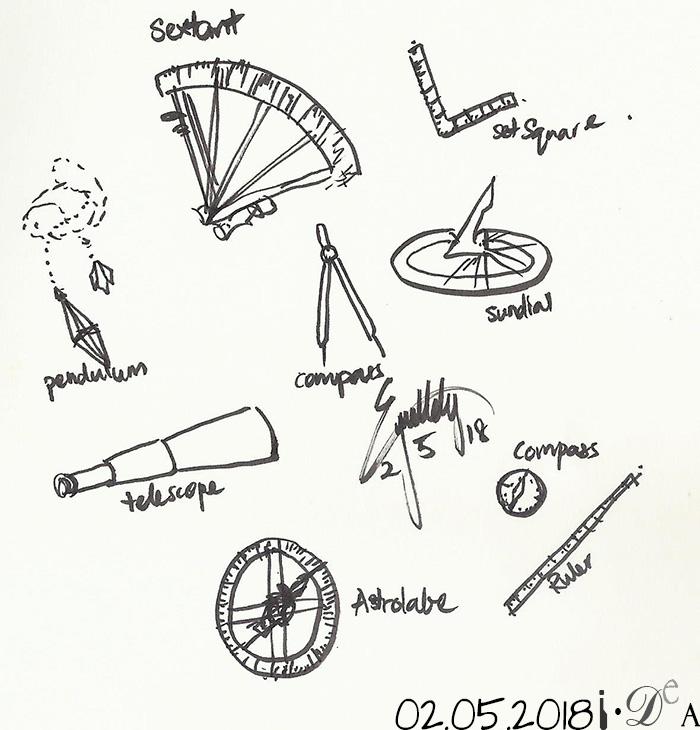 Sextant
set square
sundial
pendulum
compass
2 5 18
telescope
compass
Ruler
Astrolabe
02.05.2018 i.De A